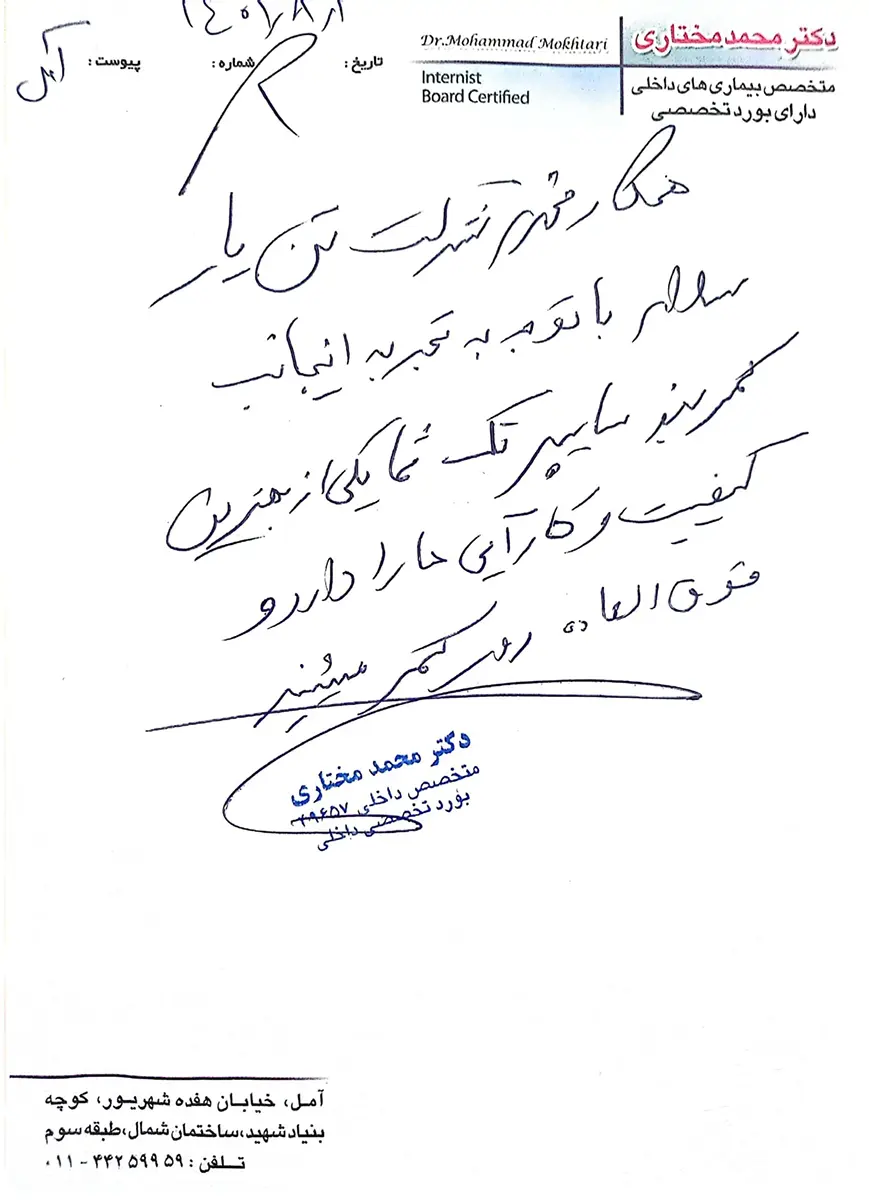 دکتر محمد مختاری
Dr.Mohammad Mokhtari
متخصص بیماری های داخلی
دارای بورد تخصصی
Internist
Board Certified
تاریخ :
شماره :
پیوست :
همکار محترم شرکت تن یار
سلام با توجه به تجربه اینجانب
کمربند سایبر تک شما یکی از بهترین
کیفیت و کارآیی ها را دارد و
فوق العاده روی کمر میشیند
دکتر محمد مختاری
متخصص داخلی
بورد تخصصی داخلی
آمل، خیابان هفده شهریور، کوچه
بنیاد شهید،ساختمان شمال،طبقه سوم
تلفن : ۴۴۲۵۹۹۵۹ - ۰۱۱